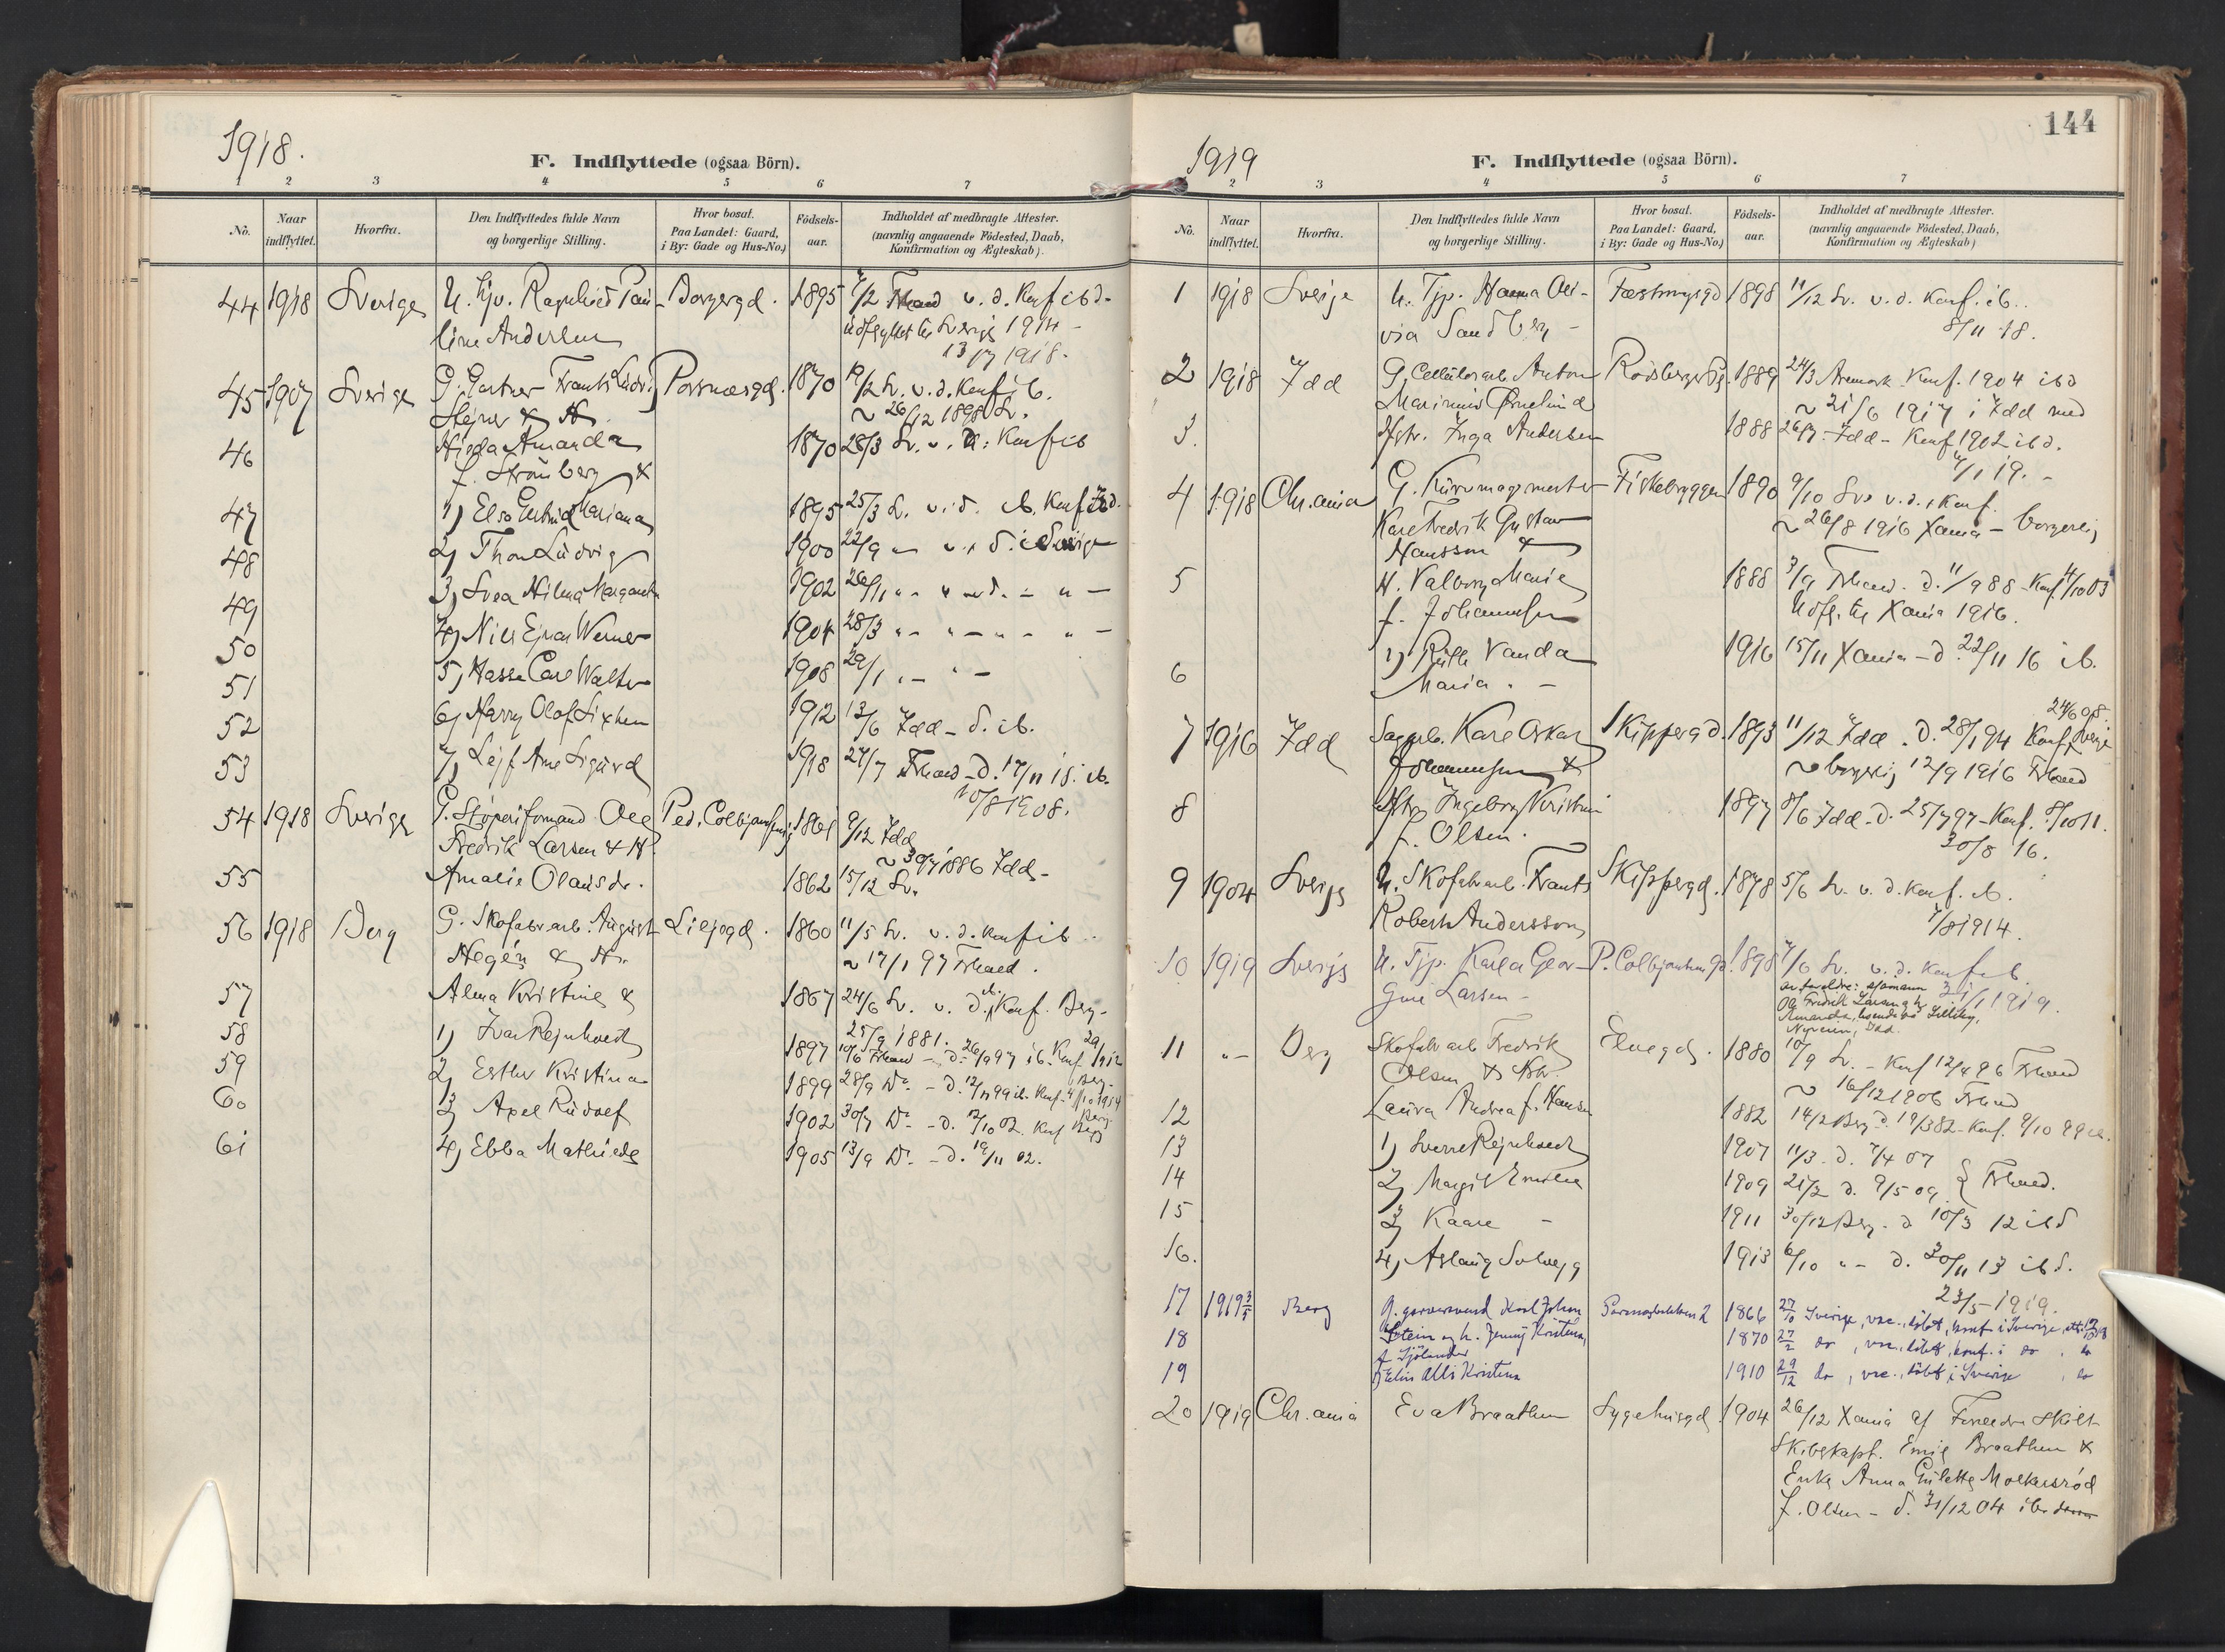 1918.
F. Indflyttede (ogsaa Börn).
1 2 3 4 5 6 7
No. Naar indflyttet. Hvorfra. Den Indflyttedes fulde Navn og borgerlige Stilling. Hvor bosat. Paa Landet: Gaard, i By: Gade og Hus-No.) Födsels-aar. Indholdet af medbragte Attester. (navnlig angaaende Födested, Daab, Konfirmation og Ægteskab).
44 1918 Sverige U. Tjv. Ragnhild Pau- Borgergd. 1895 /2 Fr.hald v. d. Konf ibd.
line Andersen udflyttet til Sverige 1914 -
13/7 1918.
45 1907 Sverige G. Gartner Frants Ludvig 1870 19/2 Sv. v. d. Konf ib.
Stejner & H. ~ 26/12 1898 Sv.
46 Hilda Amanda 1870 28/3 Sv. v. d. Konf ib
f. Strömberg &
47 1) Elsa Gertrud Mariana 1895 25/3 S. v. d. ib. Konf Idd.
48 2) Thor Ludvig 1900 22/9 " v. d. i Sverige
49 3) Svea Hilma Margareta 1902 26/11 " " d. - " -
50 4) Nils Ejnar Werner 1904 28/3 " - " - " -
51 5) Hasse Carl Walter 1908 29/1 " - " -
52 6) Harry Olof Sixten 1912 13/6 Idd - d. ib.
53 7) Lejf Arne Sigurd 1918 27/7 Fr.hald - d. 17/11 18. ib.
10/8 1908.
54 1918 Sverige G. Støperiformand Ole Ped. Colbjørnsensg 1861 9/12 Idd
Fredrik Larsen & H. ~ 30/7 1886 Idd -
55 Amalie Olausdr. 1862 15/12 Sv.
56 1918 Berg G. Skofabr.arb. August Liljegd. 1860 11/5 Sv. v. d. konf ib.
Hegén & H. ~ 17/1 97 Fr.hald.
57 Alma Kristine & 1867 24/6 Sv. v. d. ib. Konf. Berg -
25/9 1881.
58 1) Ivar Rejnholdt 1897 10/6 Fr.hald - d. 26/9 97 ib. Konf 29/ 1912
59 2) Esther Kristina 1899 28/9 Do - d. 12/11 99 ib. Konf. 4/10 1914 Berg
60 3) Axel Rudolf 1902 30/7 Do - d. 12/10 02. Konf Berg
61 4) Ebba Mathilde 1905 13/9 Do - d. 19/11 02.
144
1919
F. Indflyttede (ogsaa Börn).
2 3 4 5 6 7
No. Naar indflyttet. Hvorfra. Den Indflyttedes fulde Navn og borgerlige Stilling. Hvor bosat. Paa Landet: Gaard, i By: Gade og Hus-No.) Födsels-aar. Indholdet af medbragte Attester. (navnlig angaaende Födested, Daab, Konfirmation og Ægteskab)
1 1918 Sverje U. Tjp. Hanna Oli- Fæstningsgd 1898 11/12 Sv. v. d. Konf. ib.
via Sandberg - 8/11 18.
2 1918 Idd G. Cellulosearb. Anton Rødsbergg. 1889 24/3 Aremark Konf. 1904 ibd
Marinius Ørnelund ~ 21/6 1917 i Idd med
3. Hstr. Inga Andersen 1888 26/7 Idd - Konf 1902 ibd.
/1 19. -
4 1918 Chr.ania G. Kurvmagermester Fiskebryggen 1890 9/10 Sv. v. d. Konf.
Karl Fredrik Gustav ~ 26/8 1916 Xania - borgerlig
Hansson &
5 H. Valborg Marie 1888 3/9 Fr.hald. d. 11/9 88 - Konf 4/10 03
f. Johannesen Udfl. til Xania 1916.
6 1) Ruth Vanda 1916 15/11 Xania - d. 22/11 16 ib.
Maria. -
24/6 08.
7 1916 Idd Sagarb. Karl Oskar Skippergd. 1893 11/12 Idd. d. 28/1 94 Konf. Sverige
Johannesen & ~ borgerlig 12/9 1916 Fr.hald
8 Hstr. Ingeborg Kristine 1897 8/6 Idd - d. 25/7 97 - Konf. 8/10 11.
f. Olsen. 30/8 16.
9 1904 Sverje U. Skofabr.arb. Frants Skippergd. 1878 5/6 Sv. v. d. Konf. ib.
Robert Andersson /8 1914.
10 1919 Sverje U. Tjp. Karla Geor- P. Colbjørnsens Gd. 1898 /6 Sv. v. d. Konf ib
gine Larsen - 31/1 1919.
av foreldre: sjømann
Ole Fredrik Larsen & h.
Amanda, boende på Lilleby,
Idd.
11 " - Berg Skofabr.arb Fredrik Elvegd. 1880 10/9 Sv. - Konf 12/4 96 Fr.hald
Olsen & Hstr. ~ 16/12 1906 Fr.hald
12 Laura Andrea f. Hansen 1882 14/2 Berg d. 19/3 82 - Konf. 9/10 99 ib.
13 1) Sverre Rejnholdt 1907 11/3 - d. 7/4 07
14 2) Margit Emilie 1909 21/2 d. 9/5 09 } Fr.hald.
15 3) Kaare - 1911 30/12 Berg - d 10/3 12 ibd
16. 4) Aslaug Solvejg 1913 6/10 " - d. 30/11 13 ibd.
23/5 - 1919.
17 1919 3/5 Berg G. garversvend Karl Johan 1866 27/10 Sverige, vac., döbt, konf i Sverige, att.
18 Stein og h. Jenny Kristina, 1870 27/2 do, vac., döbt, konf. i do, do
f. Sjölander
19 1) Elin Alli Kristina 1910 29/12 do, vac., döbt i Sverige, do
20 1919 Chr.ania Eva Braathen Sygehusgd. 1904 26/12 Xania af Foreldre skilt
Skibskapt. Emil Braathen &
Enke Anna Gulette Molkersröd
f. Olsen - d. 31/12 04 ib